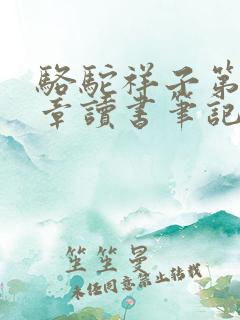 駱駝祥子第
章讀書筆記
笙笙曼
未经同意禁止转载